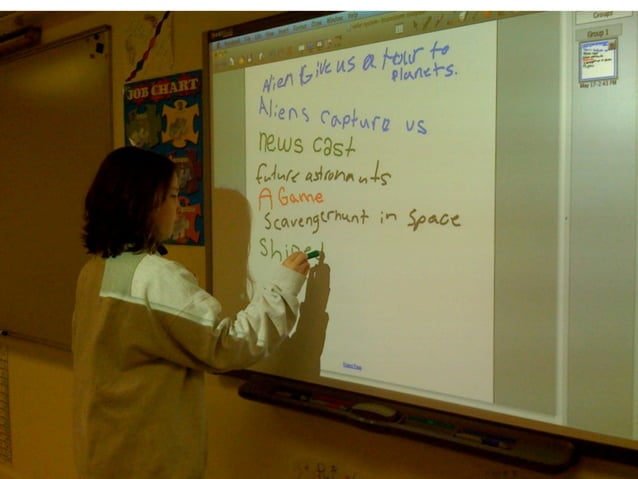 JOB CHART
Groups
Group 1
May 17-2:43 PM
Alien Give us a tour to
planets.
Aliens capture us
news cast
future astronauts
A Game
Scavengerhunt in Space